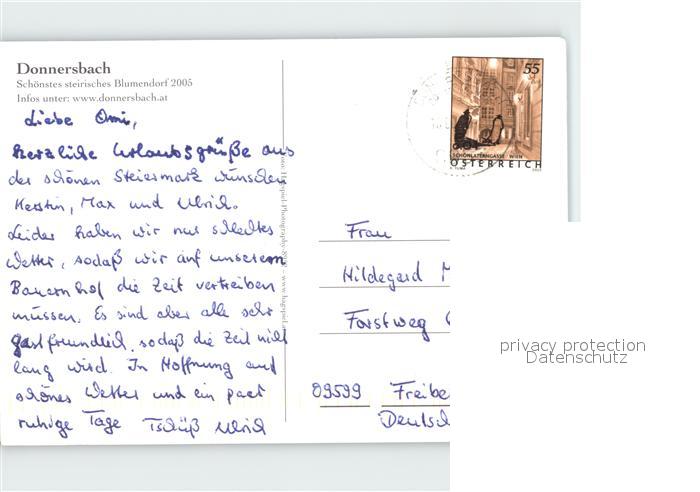 Donnersbach
Schönstes steirisches Blumendorf 2005
Infos unter: www.donnersbach.at
Liebe Omi,
herzliche Urlaubsgrüße aus
der schönen Steiermark wünschen
Kerstin, Max und Ulrich.
Leider haben wir nur schlechtes
Wetter, sodaß wir auf unserem
Bauernhof die Zeit vertreiben
müssen. Es sind aber alle sehr
gastfreundlich, sodaß die Zeit nicht
lang wird. In Hoffnung auf
schönes Wetter und ein paar
ruhige Tage Tschüß Ulrich
55
SCHÖNLATERNGASSE WIEN
ÖSTERREICH
Frau
Hildegard M
Forstweg
09599 Freibe
Deutsch
privacy protection
Datenschutz